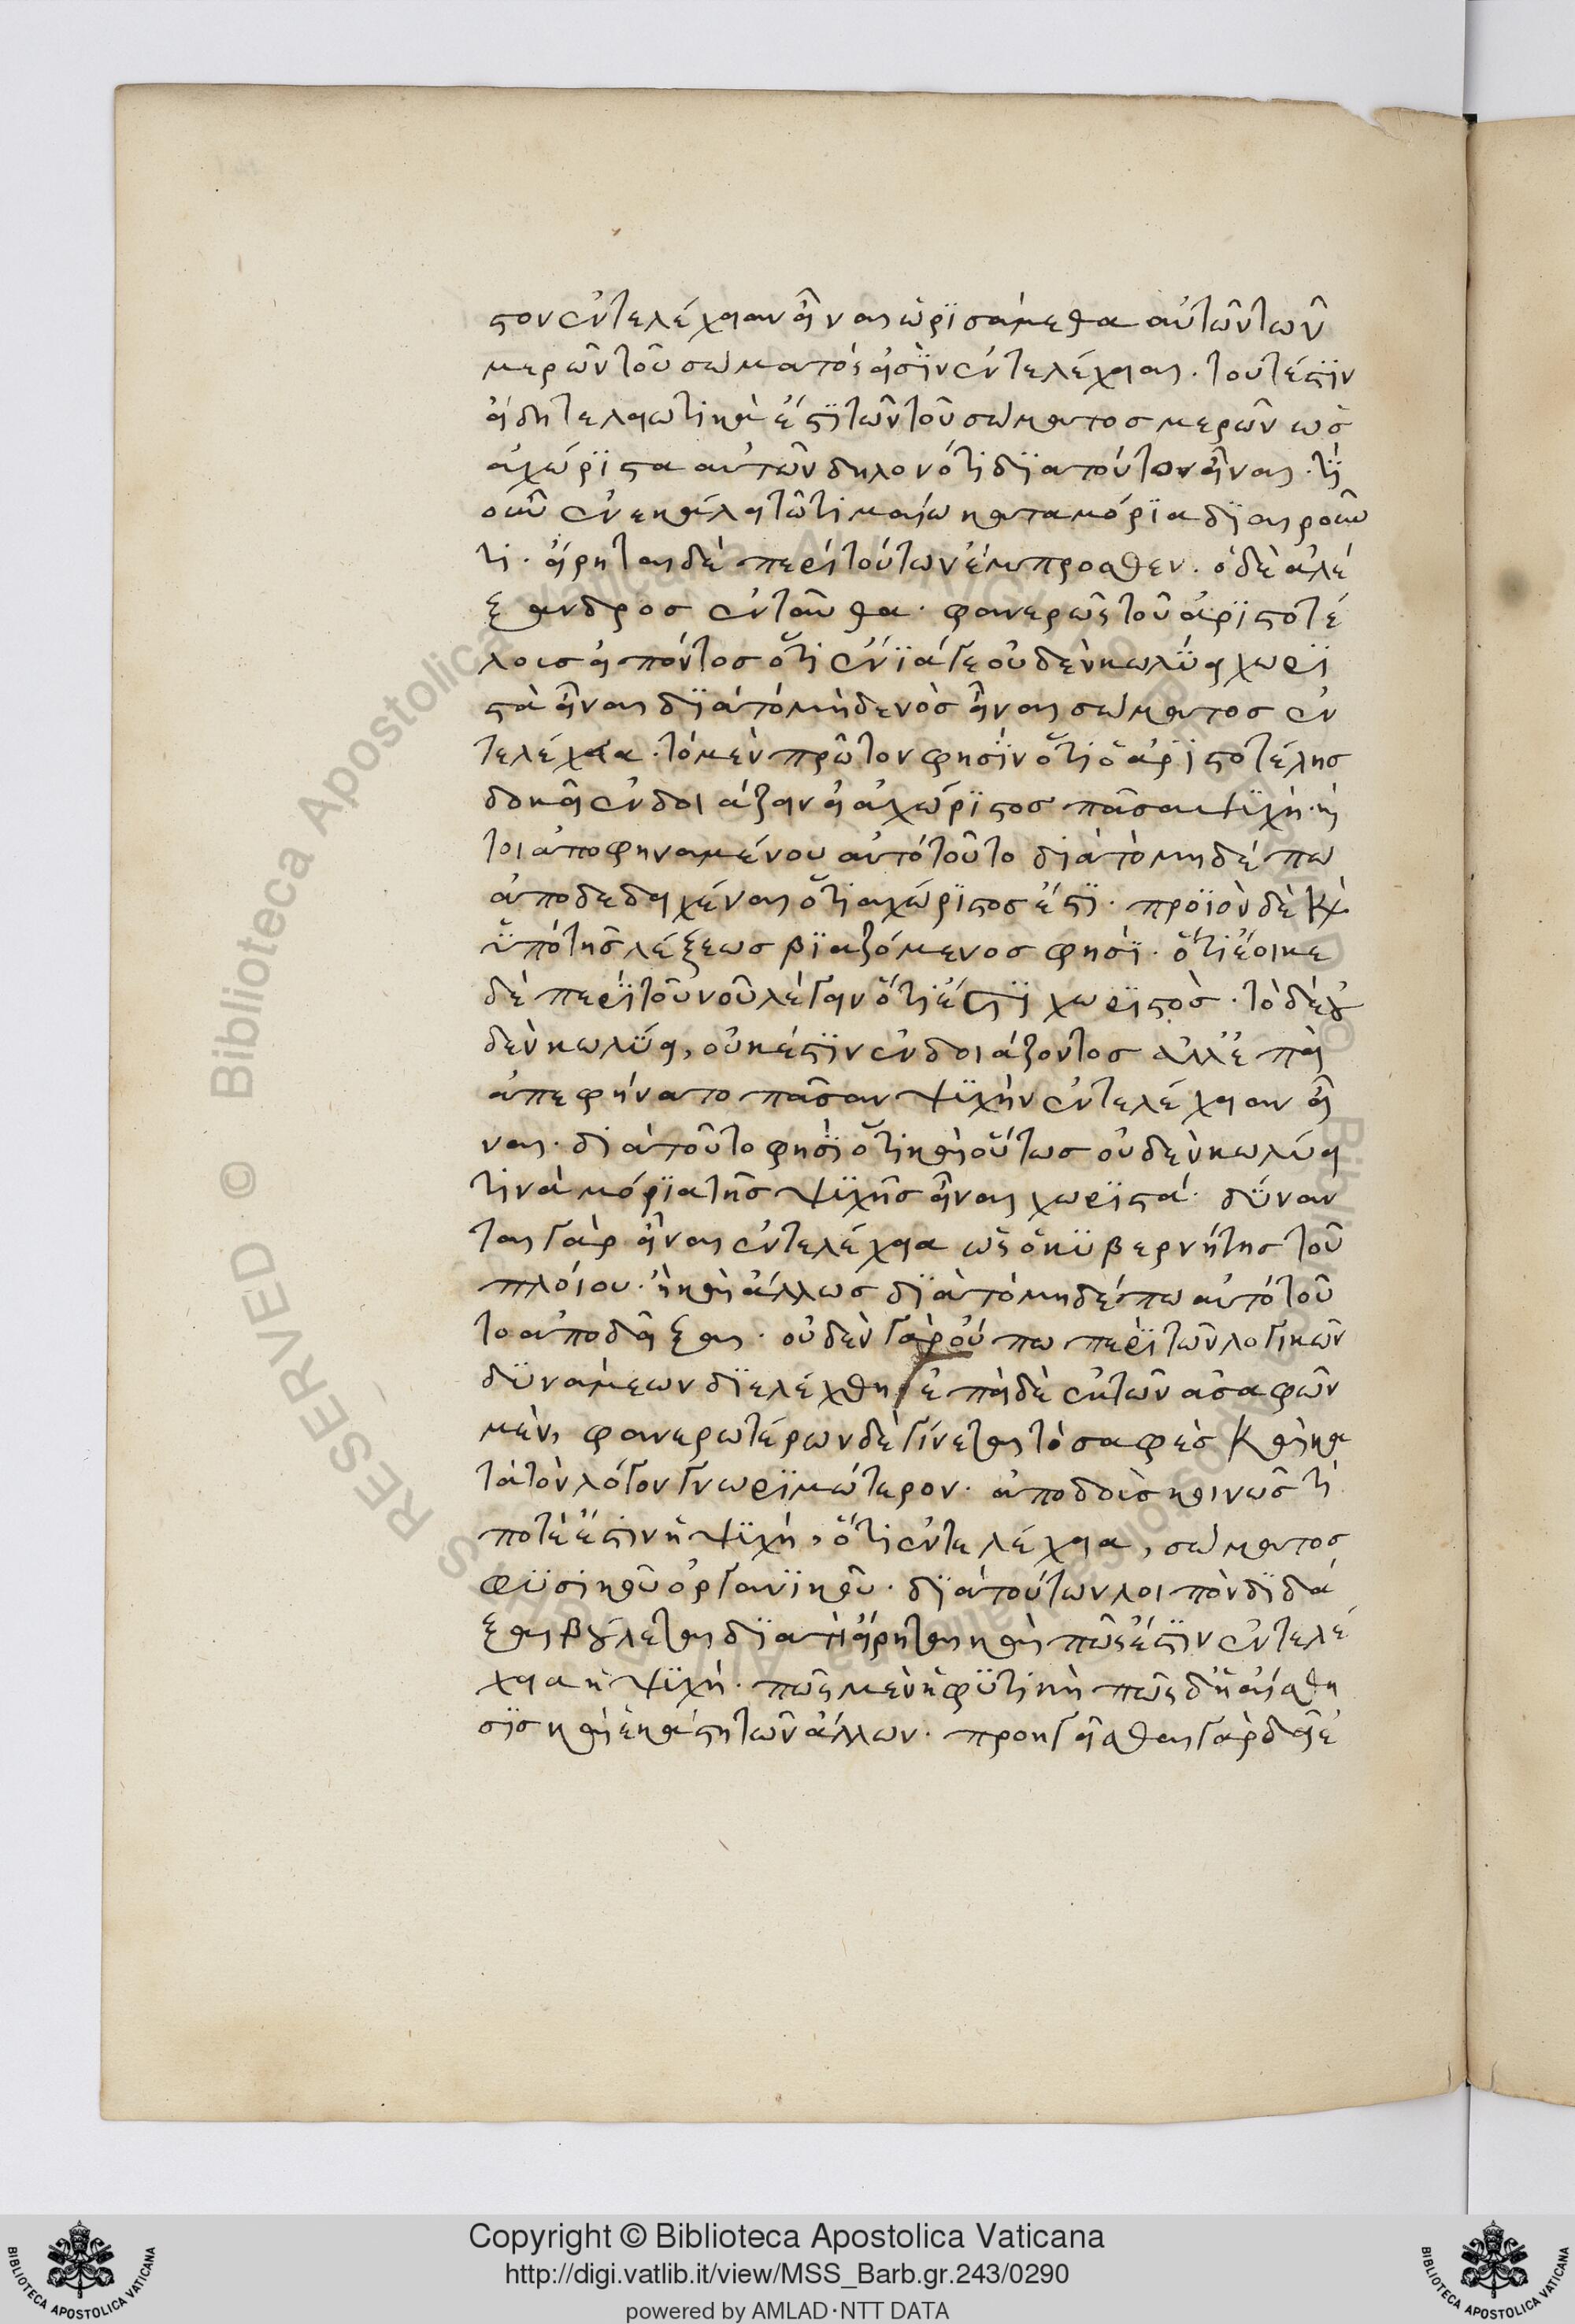 στον ἐντελέχειαν εἶναι ὡρϊσάμεθα αὐτῶν τῶν
μερῶν τοῦ σώματός εἰσϊν ἐντελέχειαι. τουτέστϊν
εἴδη τελειωτικὰ ἐστϊ τῶν τοῦ σώματος μερῶν ὡς
ἀχώρϊστα αὐτῶν δηλονότι δϊατούτων εἶναι. τῆ
οὖν ἐνεκάλει τῶ τιμαίω κατα μόρϊα δϊαιροῦν
τι. εἴρηται δὲ περὶ τούτων ἔμπροσθεν. ὁ δὲ ἀλέ
ξανδρος ἐνταῦθα. φανερῶς τοῦ ἀρϊστοτέ
λους εἰπόντος ὅτι ἔνϊά γε οὐδὲν κωλύει χωρϊ
στὰ εἶναι δϊὰ τὸ μηδενὸς εἶναι σώματος ἐν
τελέχεια. τὸ μὲν πρῶτον φησὶν ὅτι ὁ ἀρϊστοτέλης
δοκεῖ ἐνδοιάζειν εἰ ἀχώρϊστος πᾶσα ψϋχή. ἤ
τοι ἀποφηναμένου αὐτὸ τοῦτο διὰ τὸ μηδέπω
ἀποδεδειχέναι ὅτι ἀχώρϊστος ἐστϊ. προϊὸν δὲ κὶ
ϋπὸ τῆς λέξεως βϊαζόμενος φησϊ. ὅτι ἔοικε
δὲ περὶ τοῦ νοῦ λέγειν ὅτι ἐστϊ χωρϊστός. τὸ δὲ οὐ
δὲν κωλύει, οὐκ ἔστϊν ἐνδοιάζοντος ἀλλ' ἐπεὶ
ἀπεφήνατο πᾶσαν ψϋχὴν ἐντελέχειαν εἶ
ναι. διὰ τοῦτο φησϊ ὅτι καὶ οὕτως οὐδὲν κωλύει
τινὰ μόρϊα τῆς ψϋχῆς εἶναι χωρϊστά. δϋναν
ται γὰρ εἶναι ἐντελέχεια ὡς ὁ κϋβερνήτης τοῦ
πλοίου. ἢ καὶ ἄλλως δϊὰ τὸ μηδέπω αὐτὸ τοῦ
το ἀποδεῖξαι. οὐδὲν γὰρ οὔπω περϊ τῶν λογικῶν
δϋνάμεων δϊελέχθη ἐπεὶ δὲ ἐκ τῶν ἀσαφῶν
μὲν, φανερωτέρων δὲ γίνεται τὸ σαφὲς κ καὶ κα
τὰ τὸν λόγον γνωρϊμώτερον. ἀποδοὺς κοινῶς τί
ποτέ ἐστιν ἡ ψϋχή, ὅτι ἐντελέχεια, σώματος
φϋσικοῦ ὀργανϊκοῦ. δϊὰ τούτων λοιπὸν δϊδά
ξαι βούλεται δϊατὶ εἴρηται καὶ πῶς ἐστϊν ἐντελέ
χεια ἡ ψϋχή. πῶς μὲν ἡ φϋτικὴ πῶς δ' ἡ αἴσθη
σϊς καὶ ἑκάστη τῶν ἄλλων. προηγεῖσθαι γὰρ δεῖ ἐ